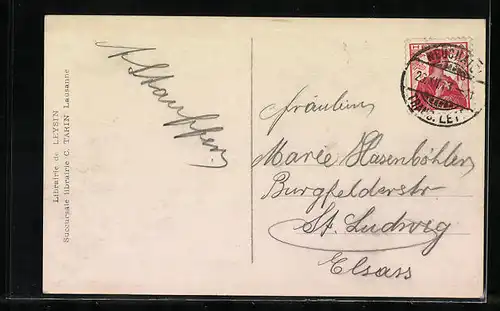 Librairie de LEYSIN
Succursale librairie C. TARIN Lausanne
Stauffer
NEUCHATEL
Fräulein
Marie Hasenböhler
Burgfelderstr
St. Ludwig
Elsass